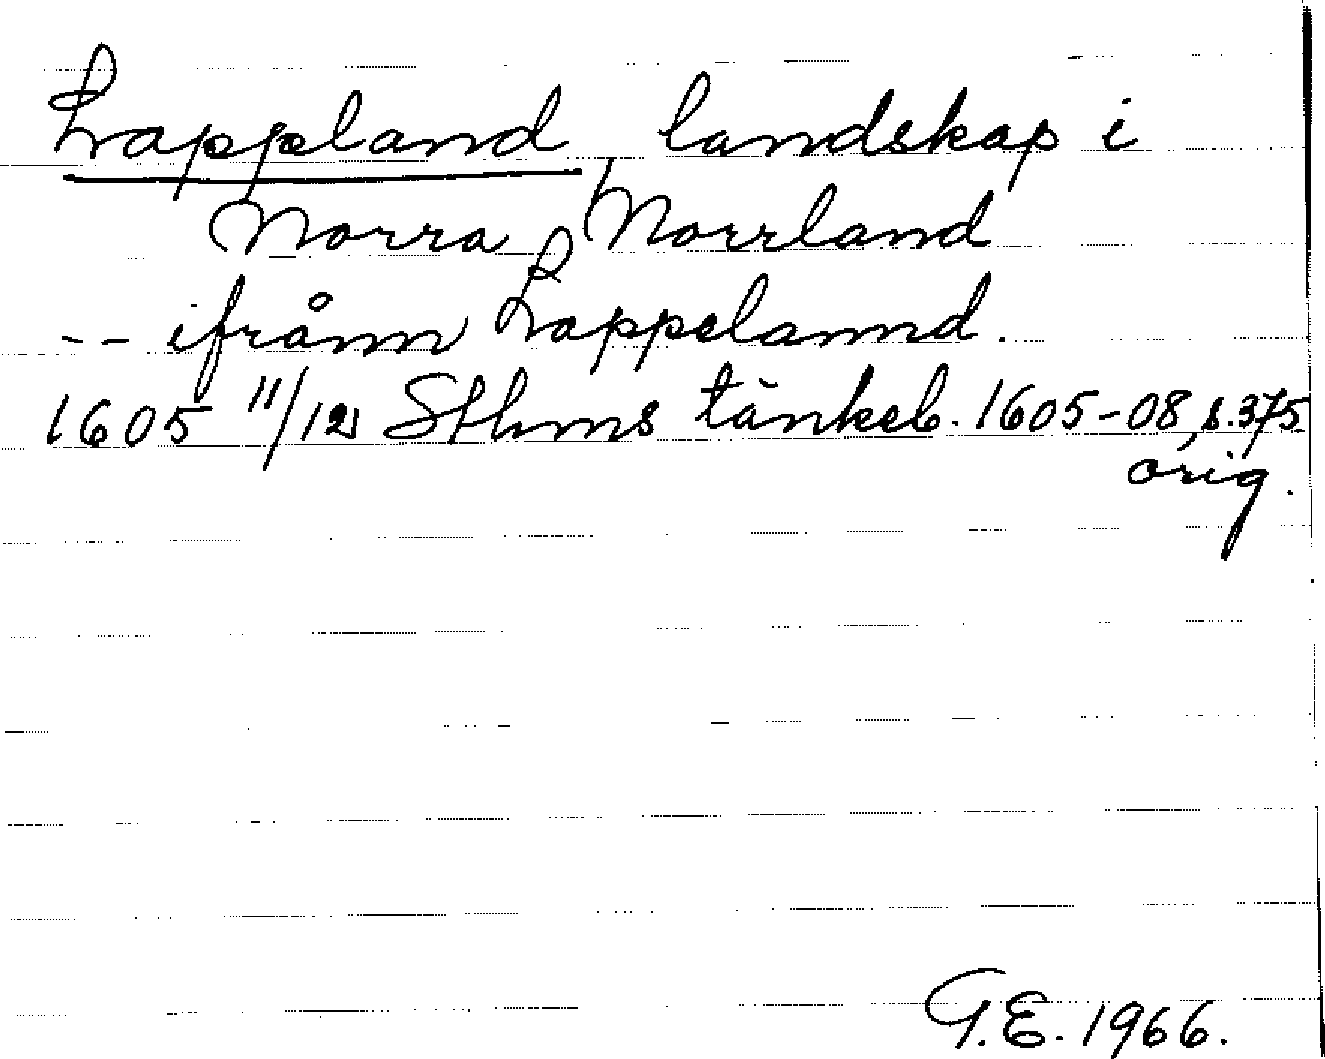 Lappland, landskap i
Norra Norrland
-- ifrånn Lappelannd.
1605 11/12 Sthms tänkeb. 1605-08, s. 375
orig.
G.E. 1966.